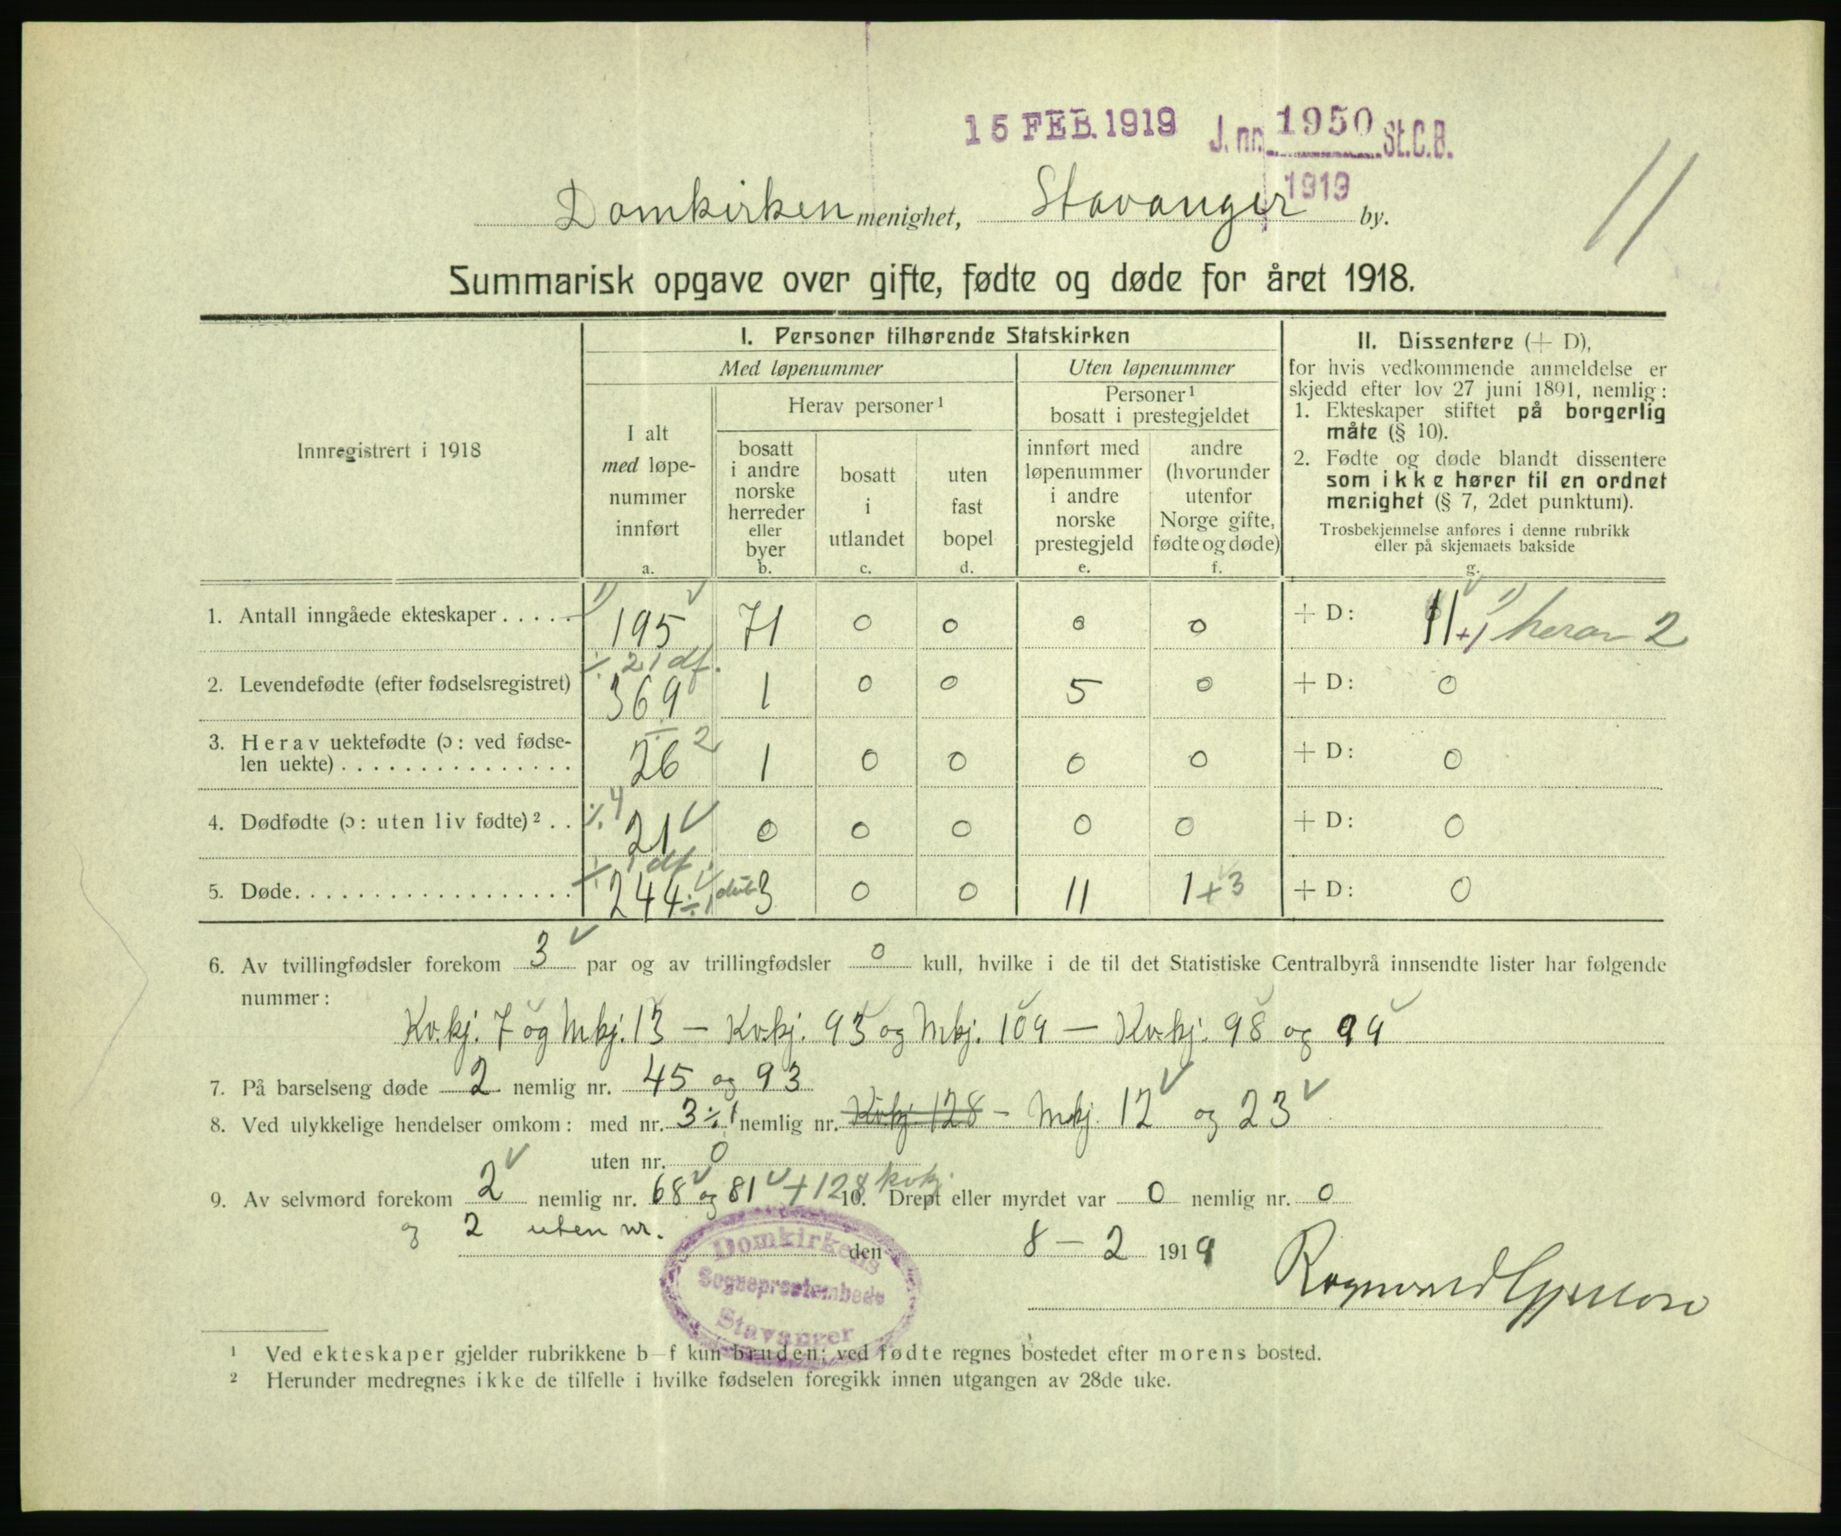 15 FEB. 1919 J. nr. 1950 St.C.B.
1919
11
Domkirken menighet, Stavanger by.
Summarisk opgave over gifte, fødte og døde for året 1918.
Innregistrert i 1918
I. Personer tilhørende Statskirken
Med løpenummer
Uten løpenummer
I alt
med løpe-
nummer
innført
a.
Herav personer¹
bosatt
i andre
norske
herreder
eller
byer
b.
bosatt
i
utlandet
c.
uten
fast
bopel
d.
Personer¹
bosatt i prestegjeldet
innført med
løpenummer
i andre
norske
prestegjeld
e.
andre
(hvorunder
utenfor
Norge gifte,
fødte og døde)
f.
II. Dissentere (+ D),
for hvis vedkommende anmeldelse er
skjedd efter lov 27 juni 1891, nemlig:
1. Ekteskaper stiftet på borgerlig
måte (§ 10).
2. Fødte og døde blandt dissentere
som ikke hører til en ordnet
menighet (§ 7, 2det punktum).
Trosbekjennelse anføres i denne rubrikk
eller på skjemaets bakside
g.
1. Antall inngåede ekteskaper . . . . . 1) 195 √ 71 0 0 0 0 + D: 11 +1 1) herav 2
÷ 21 df.
2. Levendefødte (efter fødselsregistret) 369 1 0 0 5 0 + D: 0
÷ 2
3. Herav uektefødte (ɔ: ved fødse-
len uekte) . . . . . . . . . . . . . . . 26 1 0 0 0 0 + D: 0
4. Dødfødte (ɔ: uten liv fødte)² . . ÷ 4 21 √ 0 0 0 0 0 + D: 0
÷ 1 df.
5. Døde. . . . . . . . . . . . . . . . . . 244 ÷ 1 3 0 0 11 1 + 3 + D: 0
6. Av tvillingfødsler forekom 3 √ par og av trillingfødsler 0 kull, hvilke i de til det Statistiske Centralbyrå innsendte lister har følgende
nummer:
Kvkj. 7 og Mkj. 13 — Kvkj. 93 og Mkj. 109 — Kvkj. 98 og 99
7. På barselseng døde 2 nemlig nr. 45 og 93
8. Ved ulykkelige hendelser omkom: med nr. 3 ÷ 1 nemlig nr. Kvkj. 128 — Mkj. 12 √ og 23 √
uten nr. 0
9. Av selvmord forekom 2 √ nemlig nr. 68 √ og 81 √ + 128 kvkj. 10. Drept eller myrdet var 0 nemlig nr. 0
og 2 uten nr.
den 8 — 2 1919
Domkirkens
Sogneprestembede
Stavanger
¹ Ved ekteskaper gjelder rubrikkene b—f kun bruden; ved fødte regnes bostedet efter morens bosted.
² Herunder medregnes ikke de tilfelle i hvilke fødselen foregikk innen utgangen av 28de uke.